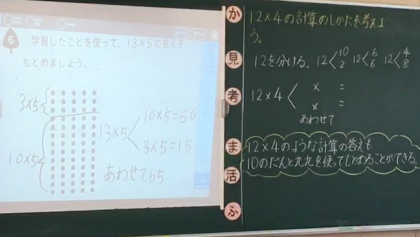 6 学習したことを使って、13×5の答えを
もとめましょう。
3×5
10×5
13×5
10×5=50
3×5=15
あわせて65
か
見
考
ま
活
ふ
12×4の計算のしかたを考えよ
う。
12を分ける。 12 10 2 12 6 6 12 4 8
12×4
× =
× =
あわせて
12×4のような計算の答えも
10のだんと九九を使ってもとめることができる。